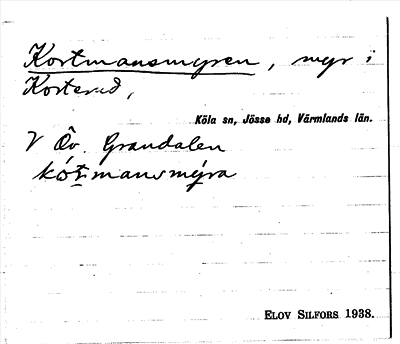 Kortmansmyren, myr i
Korterud,
Köla sn, Jösse hd, Värmlands län.
V Öv. Grandalen
kórtmansmýra
ELOV SILFORS 1938.